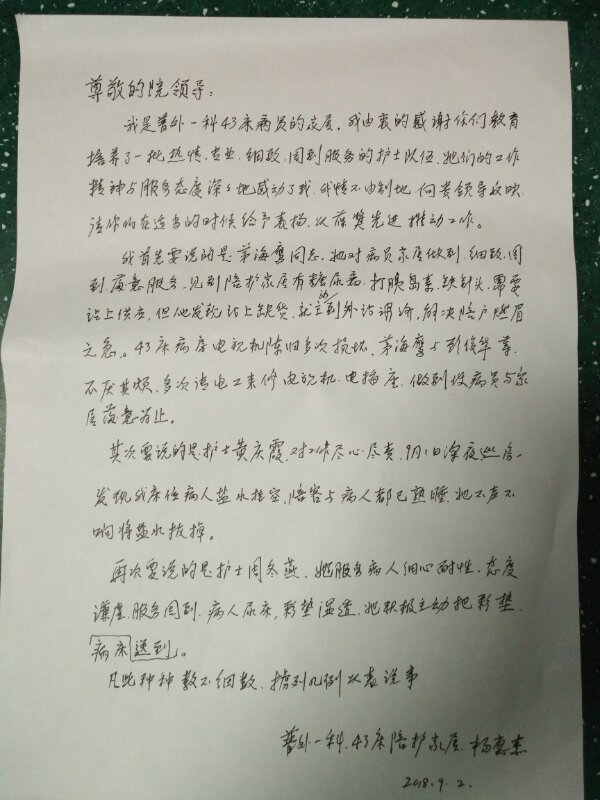 尊敬的院领导：
我是普外一科43床病员的家属，我由衷的感谢你们教育
培养了一批热情、专业、细致、周到服务的护士队伍，她们的工作
精神与服务态度深深地感动了我，我情不由别地向贵领导反映，
请你们在适当的时候给予表扬，以葆赞先进推动工作。
我首先要说的是茅海鹰同志，她对病员家属做到细致、周
到、满意服务，见到陪护家属有糖尿病，打胰岛素缺针头，需要
站上供应，但她发现站上缺货，就立即到外站调济，解决陪户燃眉
之急。43床病房电视机陈旧多次损坏，茅海鹰与彭俊华等，
不厌其烦、多次请电工来修电视机、电插座，做到使病员与家
属满意为止。
其次要说的是护士黄庆霞，对工作尽心尽责，9月1日深夜巡房，
发现我床位病人盐水挂空，陪客与病人都已熟睡，她不声不
响将盐水拔掉。
再次要说的是护士周冬燕，她服务病人细心耐性，态度
谦虚、服务周到，病人尿床，湿透，她积极主动把
病床送到。
凡此种种数不细数，择列几例以表谈事
普外一科、43床陪护家属、杨惠杰
2018.9.2.